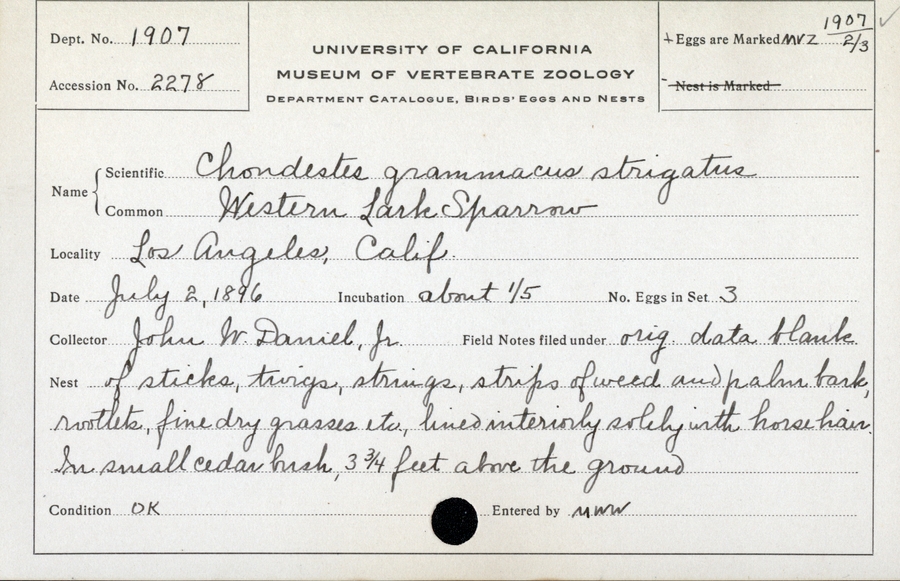 Dept. No. 1907
Accession No. 2278
UNIVERSITY OF CALIFORNIA
MUSEUM OF VERTEBRATE ZOOLOGY
DEPARTMENT CATALOGUE, BIRDS' EGGS AND NESTS
Eggs are Marked MVZ 1907 2/3
Nest is Marked
Name
Scientific Chondestes grammacus strigatus
Common Western Lark Sparrow
Locality Los Angeles, Calif.
Date July 2, 1896 Incubation about 1/5 No. Eggs in Set 3
Collector John W. Daniel, Jr. Field Notes filed under orig. data blank
Nest of sticks, twigs, strings, strips of weed and palm bark,
rootlets, fine dry grasses etc., lined interiorly solely with horse hair.
In small cedar bush, 3 3/4 feet above the ground
Condition OK Entered by MWW